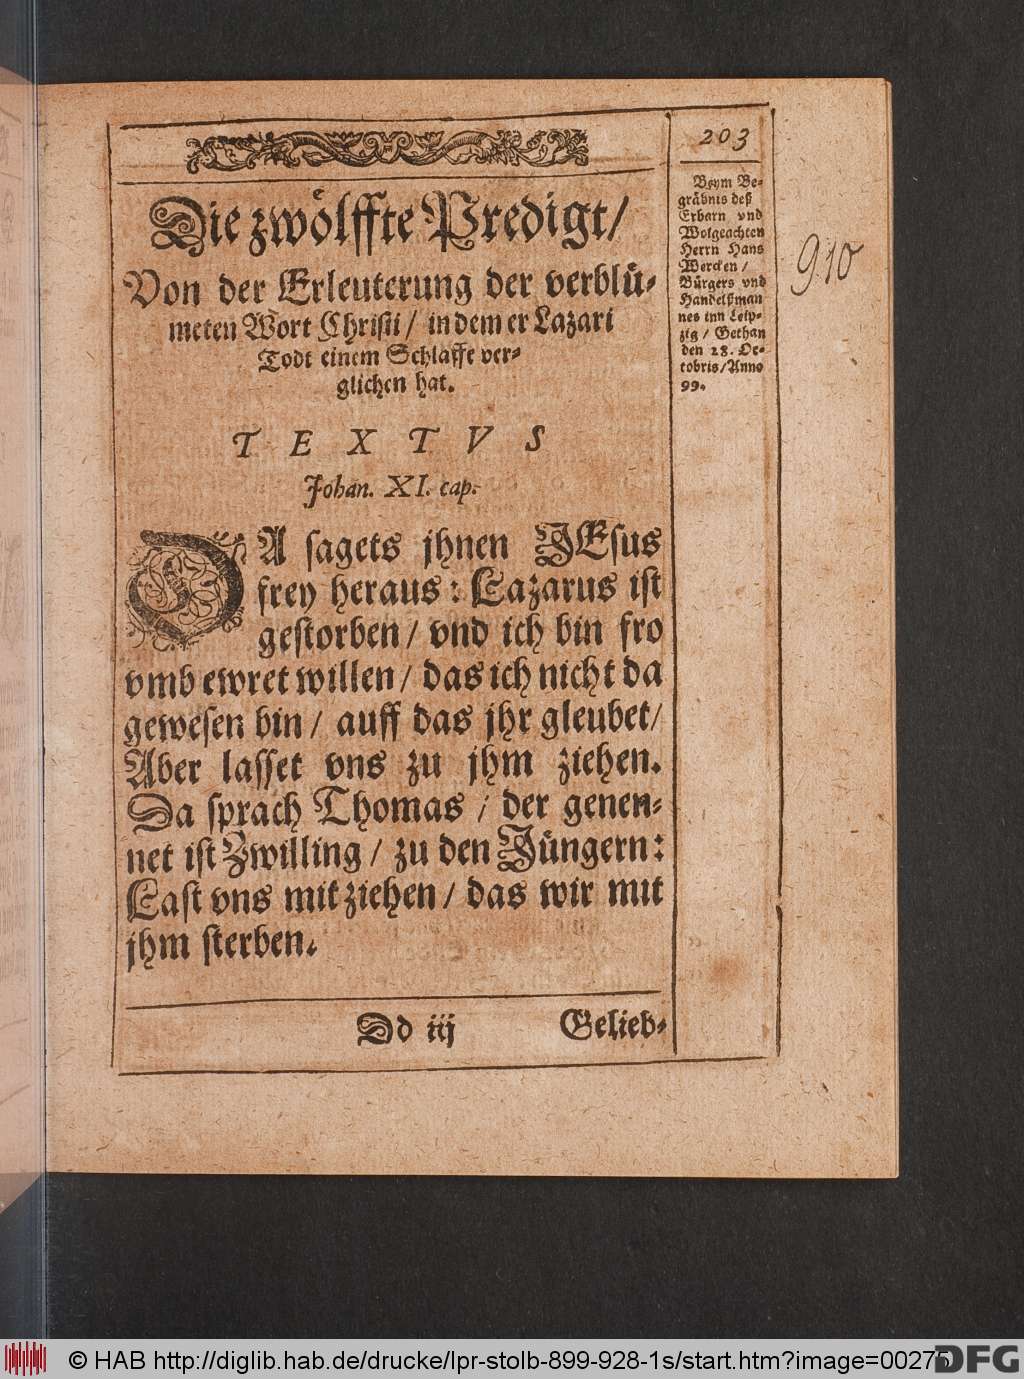 203
Die zwölffte Predigt/
Von der Erleuterung der verblü-
meten Wort Christi/ in dem er Lazari
Todt einem Schlaffe ver-
glichen hat.
TEXTVS
Johan. XI. cap.
DA sagets jhnen JEsus
frey heraus: Lazarus ist
gestorben/ vnd ich bin fro
vmb ewret willen/ das ich nicht da
gewesen bin/ auff das jhr gleubet/
Aber lasset vns zu jhm ziehen.
Da sprach Thomas/ der genen-
net ist Zwilling/ zu den Jüngern:
Last vns mit ziehen/ das wir mit
jhm sterben.
Dd iij
Gelieb-
Beym Be-
gräbnis deß
Erbarn vnd
Wolgeachten
Herrn Hans
Wercken/
Bürgers vnd
Handelßman
nes inn Leip-
zig/ Gethan
den 28. Oc-
tobris/ Anno
99.
910
© HAB http://diglib.hab.de/drucke/lpr-stolb-899-928-1s/start.htm?image=00275
DFG